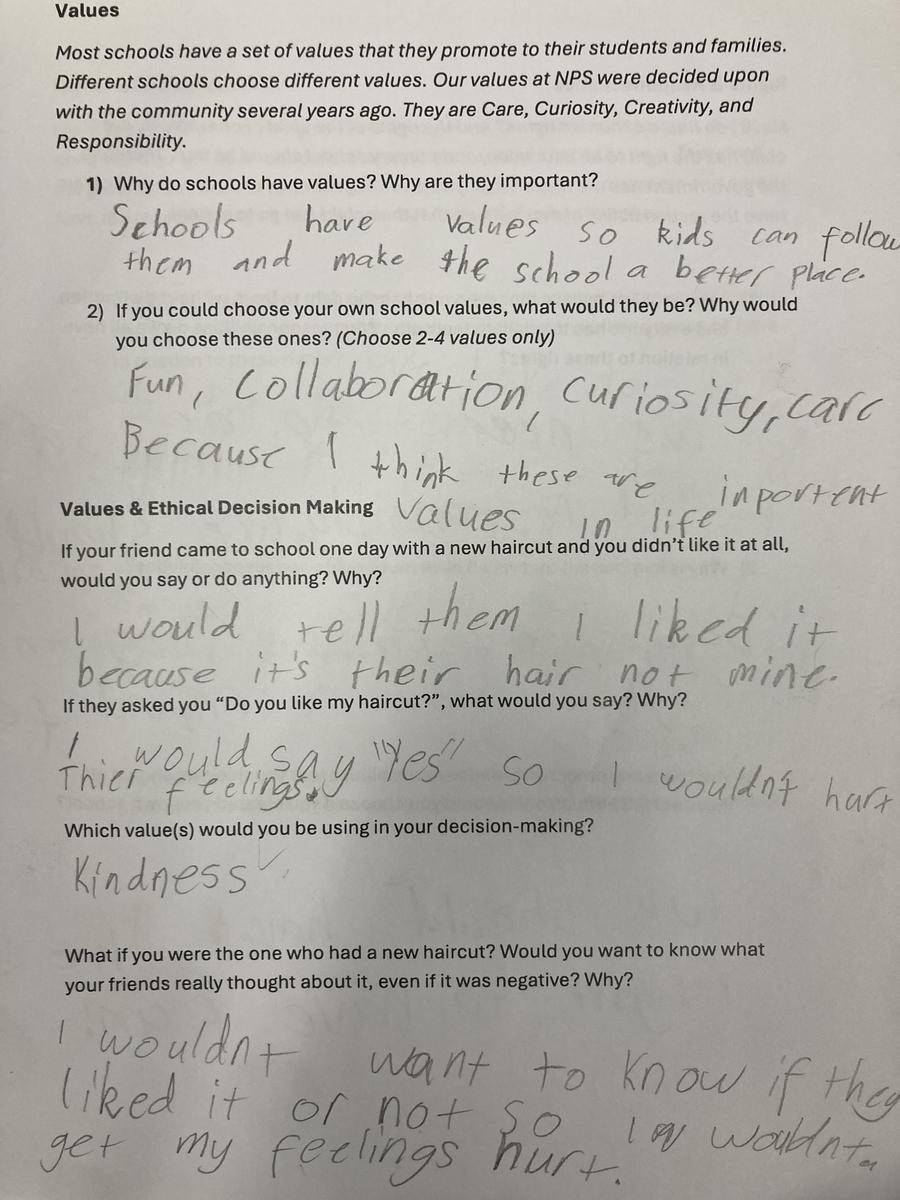 Values
Most schools have a set of values that they promote to their students and families.
Different schools choose different values. Our values at NPS were decided upon
with the community several years ago. They are Care, Curiosity, Creativity, and
Responsibility.
1) Why do schools have values? Why are they important?
Schools have values so kids can follow
them and make the school a better place.
2) If you could choose your own school values, what would they be? Why would
you choose these ones? (Choose 2-4 values only)
Fun, collaboration, curiosity, care
Because I think these are inportent
Values & Ethical Decision Making values in life
If your friend came to school one day with a new haircut and you didn't like it at all,
would you say or do anything? Why?
I would tell them I liked it
because it's their hair not mine.
If they asked you “Do you like my haircut?”, what would you say? Why?
I would say "Yes" so I wouldn't hart
Thier feelings.
Which value(s) would you be using in your decision-making?
Kindness
What if you were the one who had a new haircut? Would you want to know what
your friends really thought about it, even if it was negative? Why?
I wouldnt want to know if they
liked it or not so I wouldnt
get my feelings hurt.